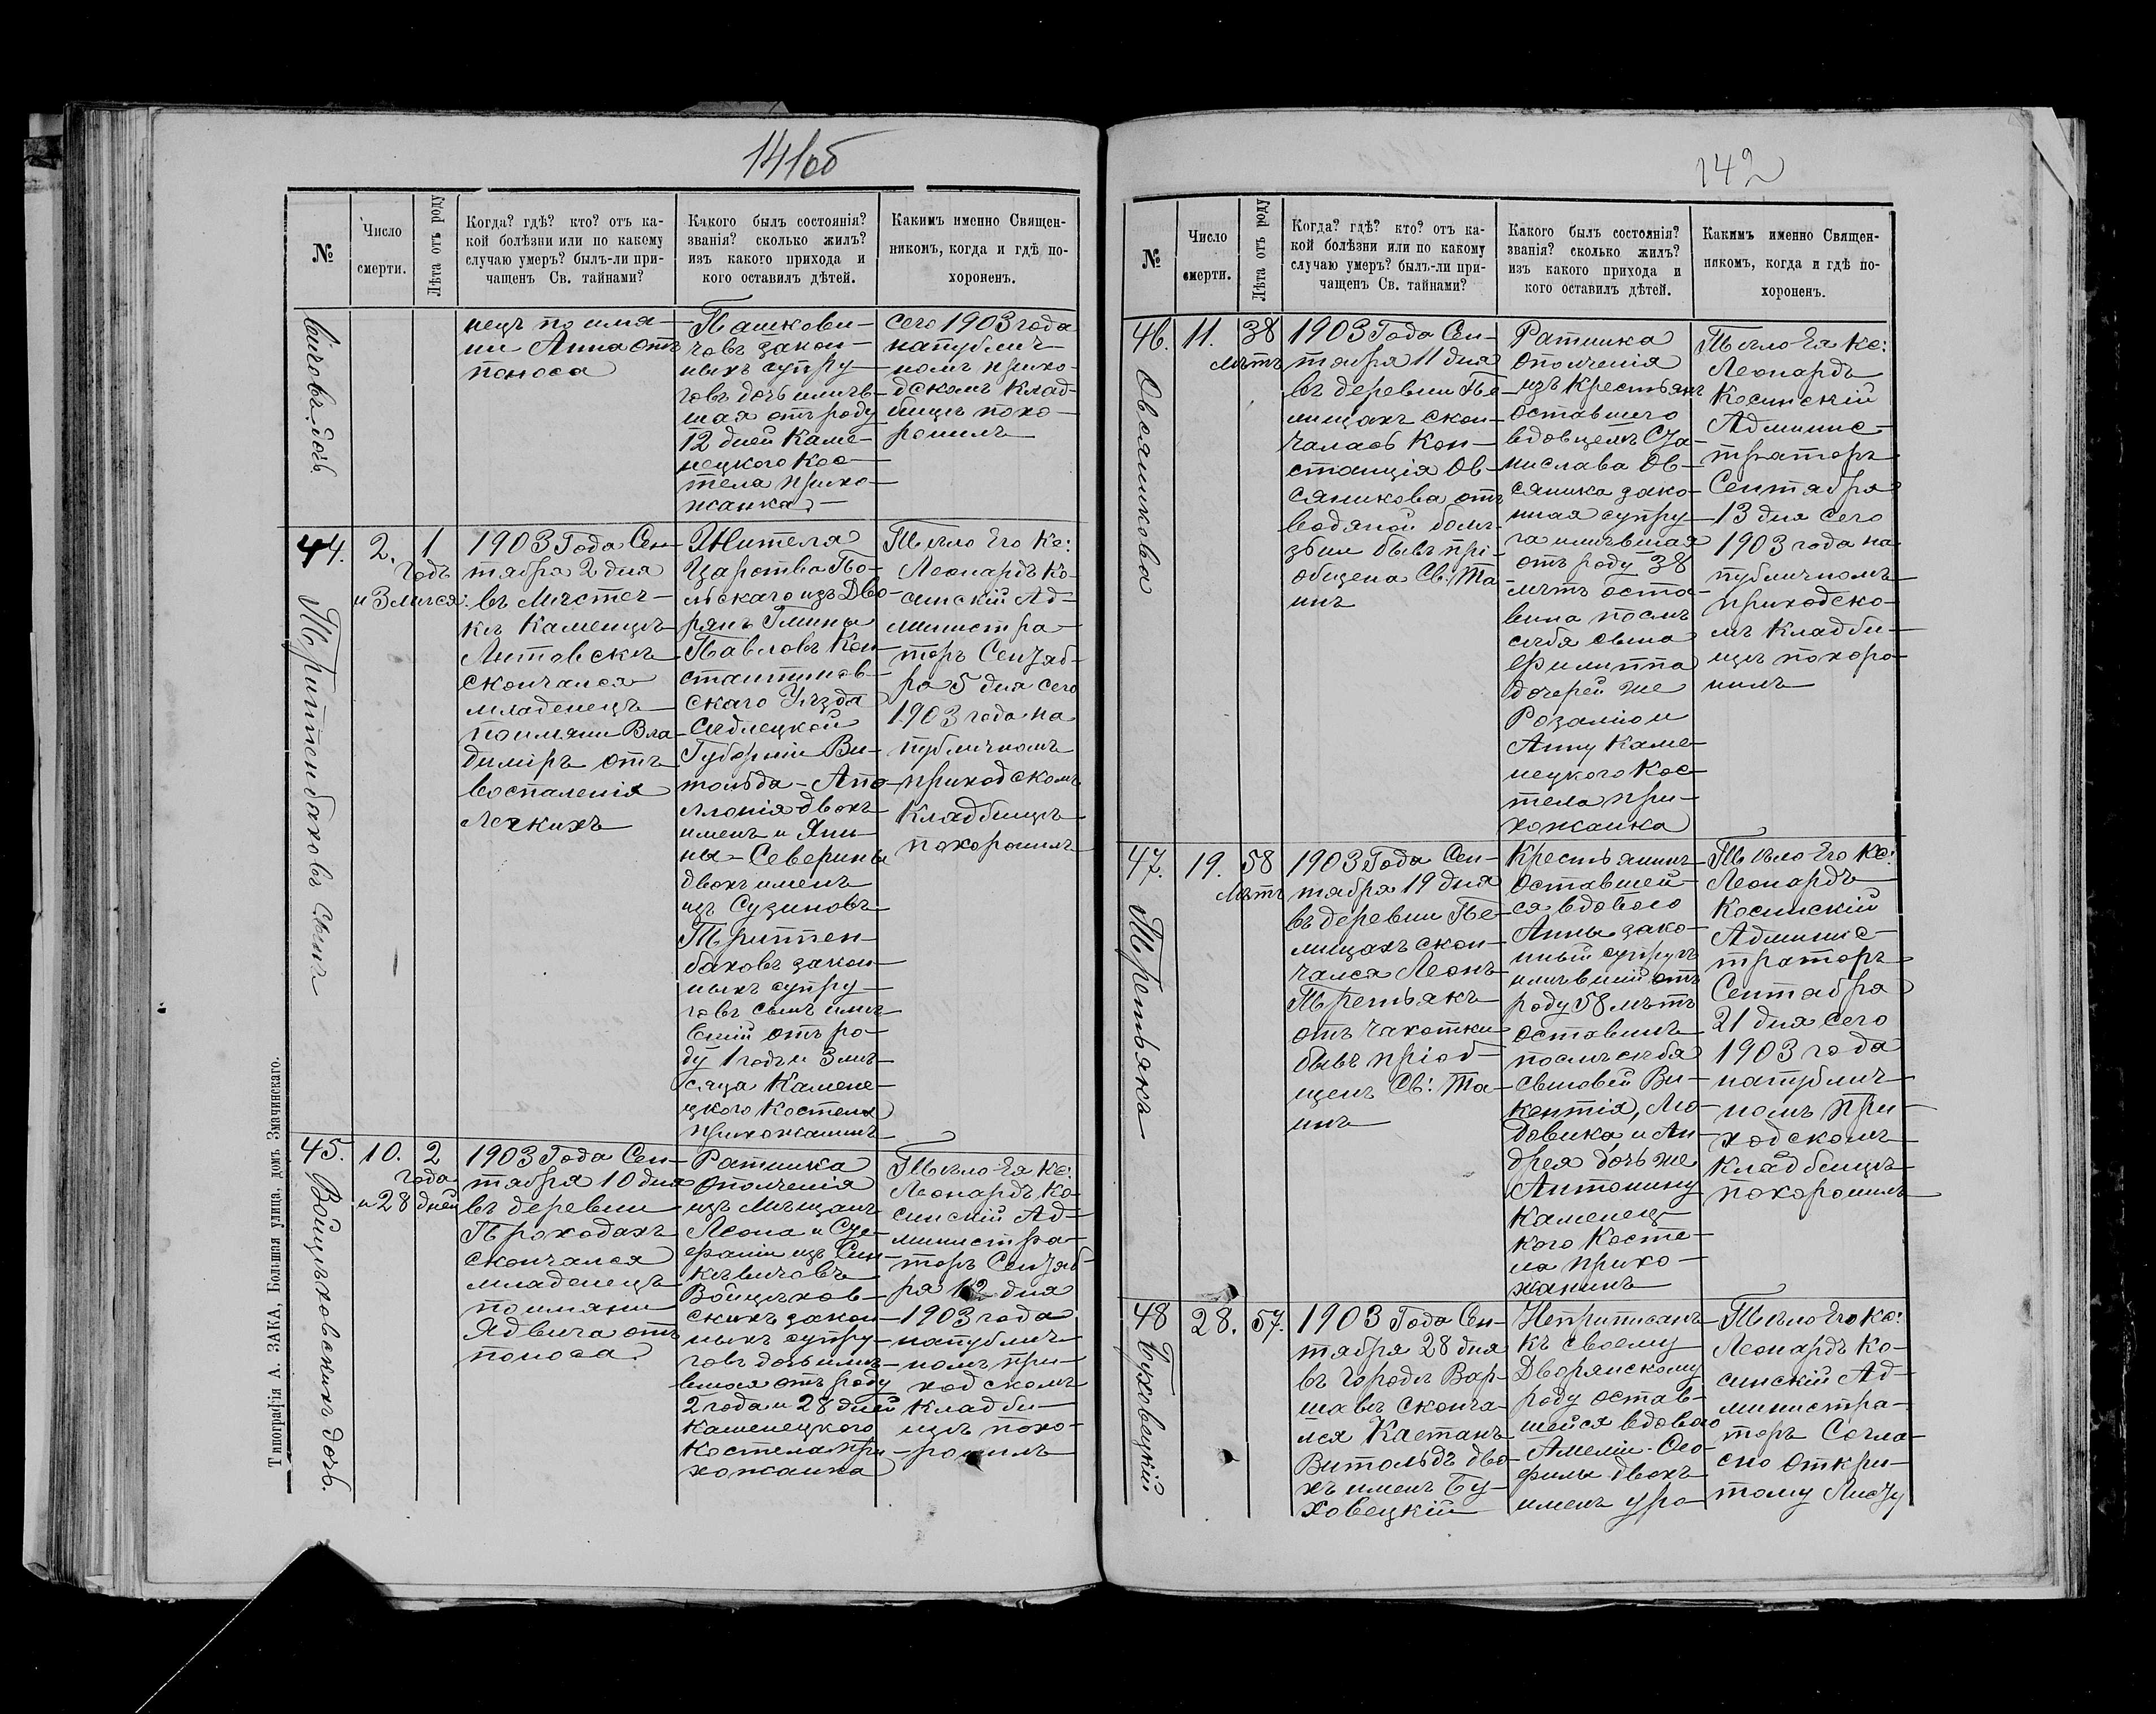 141об
№
Число
смерти.
Лѣта отъ роду
Когда? гдѣ? кто? отъ ка-
кой болѣзни или по какому
случаю умеръ? былъ-ли при-
чащенъ Св. тайнами?
Какого былъ состоянія?
званія? сколько жилъ?
изъ какого прихода и
кого оставилъ дѣтей.
Какимъ именно Священ-
никомъ, когда и гдѣ по-
хороненъ.
вичовъ дочь
нецъ по имя-
ни Анна отъ
поноса
Пашкови-
човъ закон-
ныхъ супру-
говъ дочь имѣв-
шая отъ роду
12 дней Каме-
нецкого Кос-
тела прихо-
жанка
сего 1903 года
на публич-
номъ прихо-
дскомъ Клад-
бищѣ похо-
ронилъ
44.
Триппенбаховъ сынъ
2.
1
годъ
и 3 мѣсяца
1903 Года Сен-
тября 2 дня
въ Мѣстеч-
кѣ Каменцѣ-
Литовскѣ
скончался
младенецъ
по имяни Вла-
димiръ отъ
воспаленія
Легкихъ
Жителя
Царства По-
льскаго изъ Дво-
рянъ Гмины
Павловъ Кон-
стантинов-
скаго Уѣзда
Сѣдлецкой
Губерніи Ви-
тольда-Апо-
ллонія двохъ
именъ и Яни-
ны-Северины
двохъ именъ
изъ Сузиновъ
Триппен-
баховъ закон-
ныхъ супру-
говъ сынъ имѣ-
вшій отъ ро-
ду 1 годъ и 3 мѣ-
сяца Камене-
цкого Костела
прихожанинъ
Тѣло Его Кс:
Леонардъ Ко-
синскій Ад-
министра-
торъ Сентяб-
ря 5 дня сего
1903 года на
публичномъ
приходскомъ
Кладбищѣ
похоронилъ
45.
Войцѣховскихъ дочь.
10.
2
года
и 28 дней
1903 Года Сен-
тября 10 дня
въ деревни
Проходахъ
скончался
младенецъ
по имяни
Ядвига отъ
поноса.
Ратника
Ополченія
изъ Мѣщанъ
Леона и Сте-
фаніи изъ Син-
кѣвичовъ
Войцѣхов-
скихъ закон-
ныхъ супру-
говъ дочь имѣ-
вшая отъ роду
2 года и 28 дней
Каменецкого
Костела при-
хожанка
Тѣло Ея Кс:
Леонардъ Ко-
синскій Ад-
министра-
торъ Сентяб-
ря 12 дня
1903 года
на публич-
номъ при-
ходскомъ
Кладби-
щѣ похо-
ронилъ
Типографія А. ЗАКА, Большая улица, домъ Змачинскаго.
142
№
Число
смерти.
Лѣта отъ роду
Когда? гдѣ? кто? отъ ка-
кой болѣзни или по какому
случаю умеръ? былъ-ли при-
чащенъ Св. тайнами?
Какого былъ состоянія?
званія? сколько жилъ?
изъ какого прихода и
кого оставилъ дѣтей.
Какимъ именно Священ-
никомъ, когда и гдѣ по-
хороненъ.
46.
Овсяникова
11.
38
Лѣтъ
1903 Года Сен-
тября 11 дня
въ деревни Пе-
лищахъ скон-
чалась Кон-
станція Ов-
сяникова отъ
водяной болѣ-
зни бывъ прі-
общена Св: Та-
инъ
Ратника
Ополченія
изъ Крестьянъ
оставшего
вдовцемъ Ста-
нислава Ов-
сяника зако-
нная супру-
га имѣвшая
отъ роду 38
лѣтъ оста-
вила послѣ
себя сына
Филиппа
дочерей же
Розалію и
Анну Каме-
нецкого Кос-
тела при-
хожанка
Тѣло Ея Кс:
Леонардъ
Косинскій
Админис-
траторъ
Сентября
13 дня сего
1903 года на
публичномъ
приходско-
мъ Кладби-
щѣ похоро-
нилъ
47.
Третьякъ
19.
58
Лѣтъ
1903 Года Сен-
тября 19 дня
въ деревни Пе-
лищахъ скон-
чался Леонъ
Третьякъ
отъ чахотки
бывъ пріоб-
щенъ Св: Та-
инъ
Крестьянинъ
Оставшей-
ся вдовою
Анны зако-
нный супругъ
имѣвшій отъ
роду 58 лѣтъ
оставилъ
послѣ себя
сыновей Ви-
кентія, Лю-
довика и Ан-
дрея дочь же
Антонину
Каменец-
кого Косте-
ла прихо-
жанинъ
Тѣло Его Кс:
Леонардъ
Косинскій
Админис-
траторъ
Сентября
21 дня сего
1903 года
на публич-
номъ при-
ходскомъ
Кладбищѣ
похоронилъ
48
Буховецкій
28.
57.
1903 Года Сен-
тября 28 дня
въ городѣ Вар-
шавѣ сконча-
лся Каетанъ
Витольдъ дво-
хъ именъ Бу-
ховецкій
Неприписанъ
къ своему
Дворянскому
роду остав-
шейся вдовою
Амеліи-Оео-
филы двохъ
именъ уро-
Тѣло Его Кс:
Леонардъ Ко-
синскій Ад-
министра-
торъ Согла-
сно Откры-
тому Листу